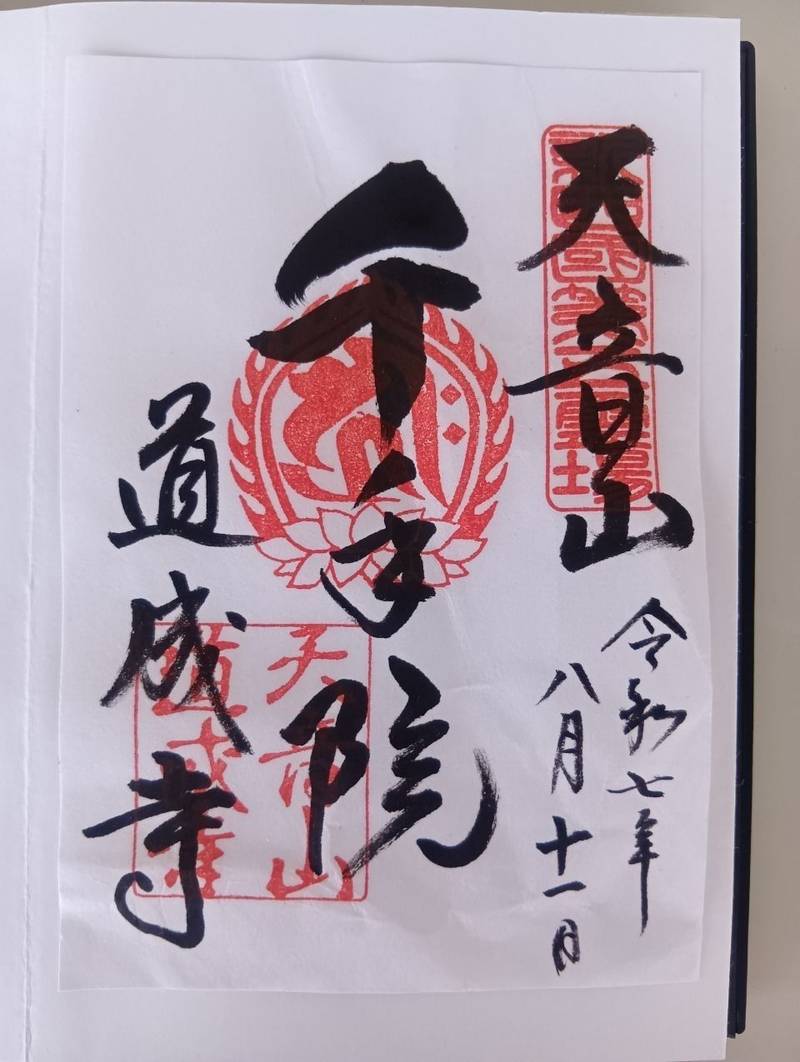 天音山
令和七年
八月十一日
千手院
道成寺
天音山
道成寺